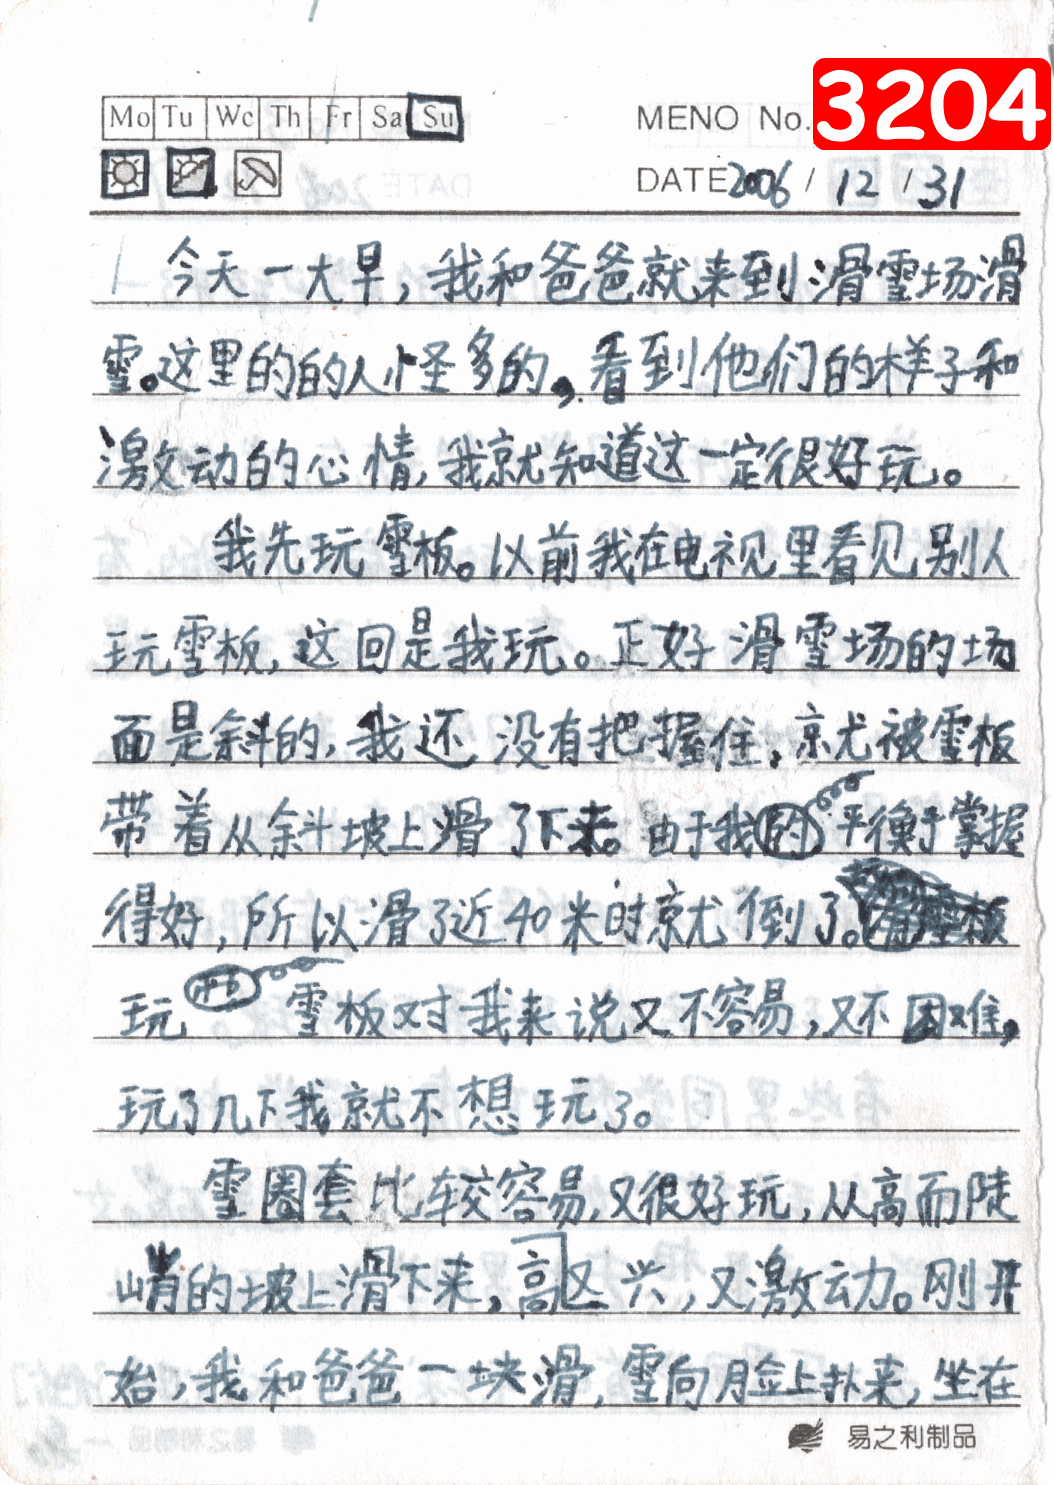 3204
Mo Tu We Th Fr Sa Su
MENO No.
DATE 2006 / 12 / 31
今天一大早,我和爸爸就来到滑雪场滑
雪。这里的的人怪多的,看到他们的样子和
激动的心情,我就知道这一定很好玩。
我先玩雪板。以前我在电视里看见别人
玩雪板,这回是我玩。正好滑雪场的场
面是斜的,我还没有把握住,就被雪板
带着从斜坡上滑了下来。由于我的平衡于掌握
得好,所以滑了近40米时就倒了。
玩雪板对我来说又不容易,又不困难,
玩了几下我就不想玩了。
雪圈套比较容易,又很好玩,从高而陡
峭的坡上滑下来,高又兴,又激动。刚开
始,我和爸爸一块滑,雪向脸上扑来,坐在
易之利制品